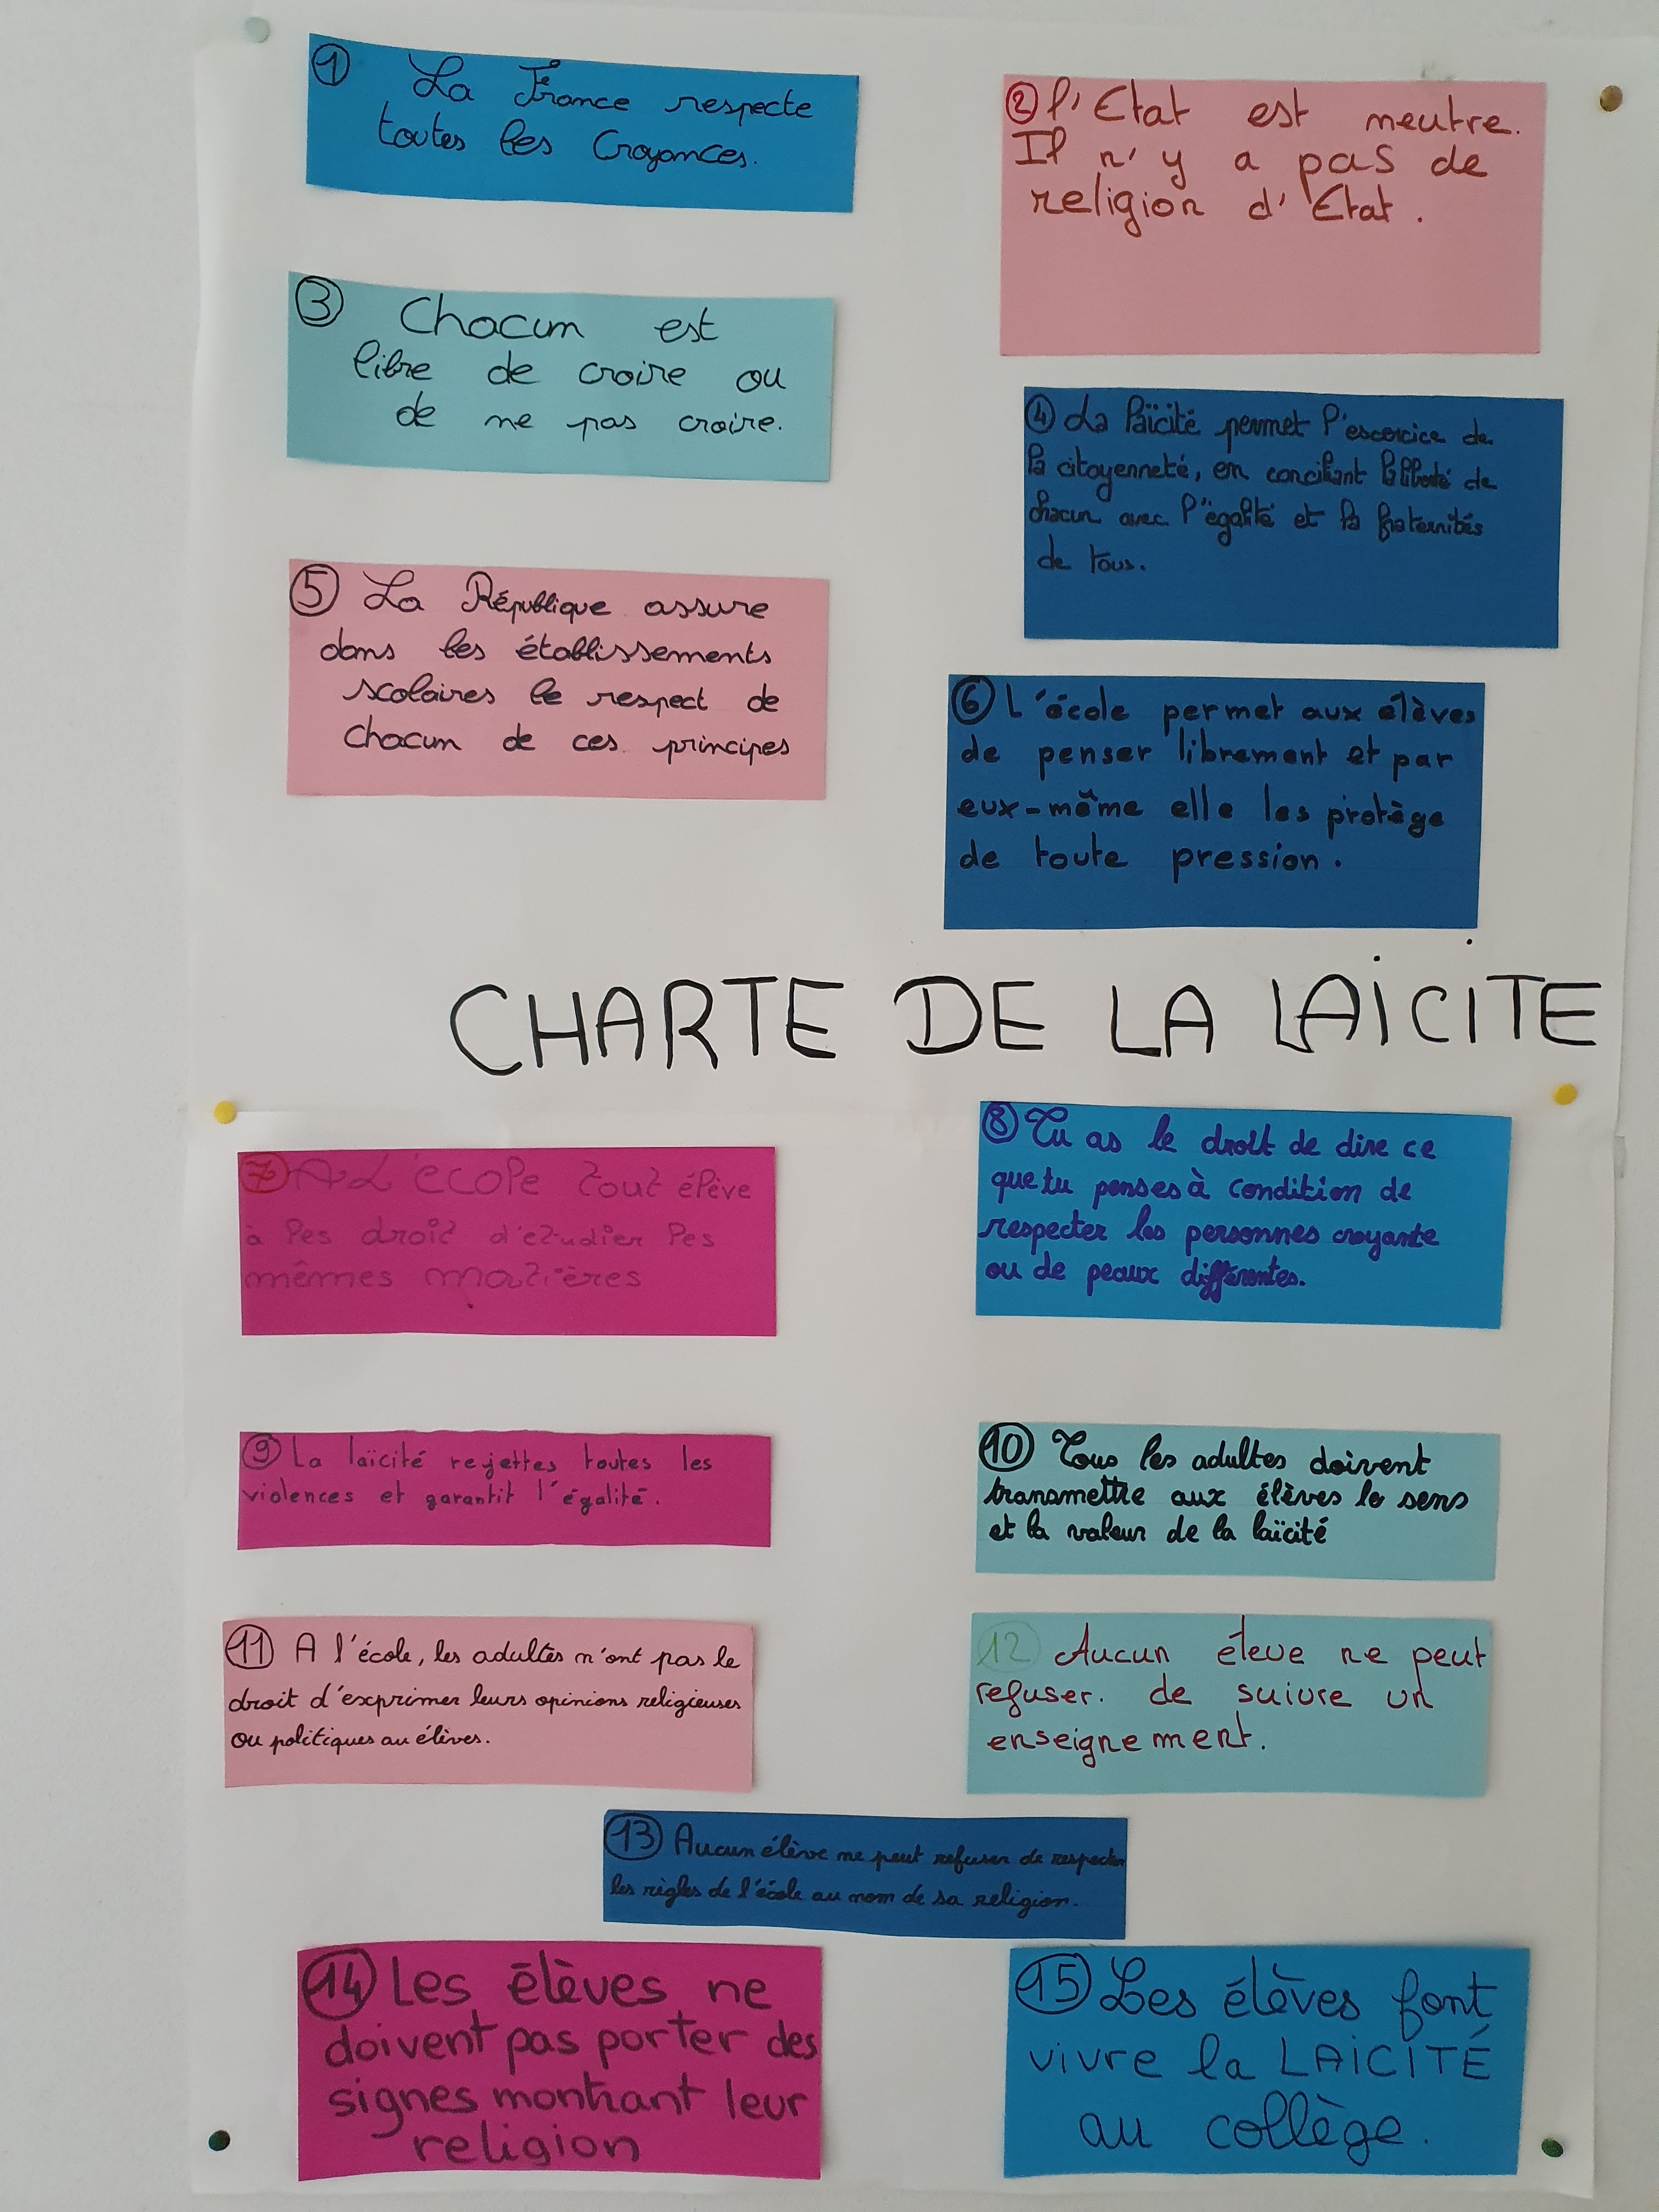 ① La France respecte
toutes les Croyances.
② l'Etat est neutre.
Il n'y a pas de
religion d'Etat.
③ Chacun est
libre de croire ou
de ne pas croire.
④ La laïcité permet l'escercice de
la citoyenneté, en conciliant la liberté de
chacun avec l'égalité et la fraternités
de tous.
⑤ La République assure
dans les établissements
scolaires le respect de
chacun de ces principes
⑥ L'école permet aux élèves
de penser librement et par
eux-même elle les protège
de toute pression.
CHARTE DE LA LAÏCITE
⑦ A L'école tout élève
à les droit d'etudier les
mêmes matières
⑧ Tu as le droit de dire ce
que tu penses à condition de
respecter les personnes croyante
ou de peaux différentes.
⑨ La laïcité rejettes toutes les
violences et garantit l'égalité.
⑩ Tous les adultes doivent
transmettre aux élèves le sens
et la valeur de la laïcité
⑪ A l'école, les adultes n'ont pas le
droit d'exprimer leurs opinions religieuses
ou politiques au élèves.
⑫ Aucun éleve ne peut
refuser. de suivre un
enseignement.
⑬ Aucun élève ne peut refuser de respecter
les règles de l'école au nom de sa religion.
⑭ Les élèves ne
doivent pas porter des
signes montrant leur
religion
⑮ Les élèves font
vivre la LAÏCITÉ
au collège.